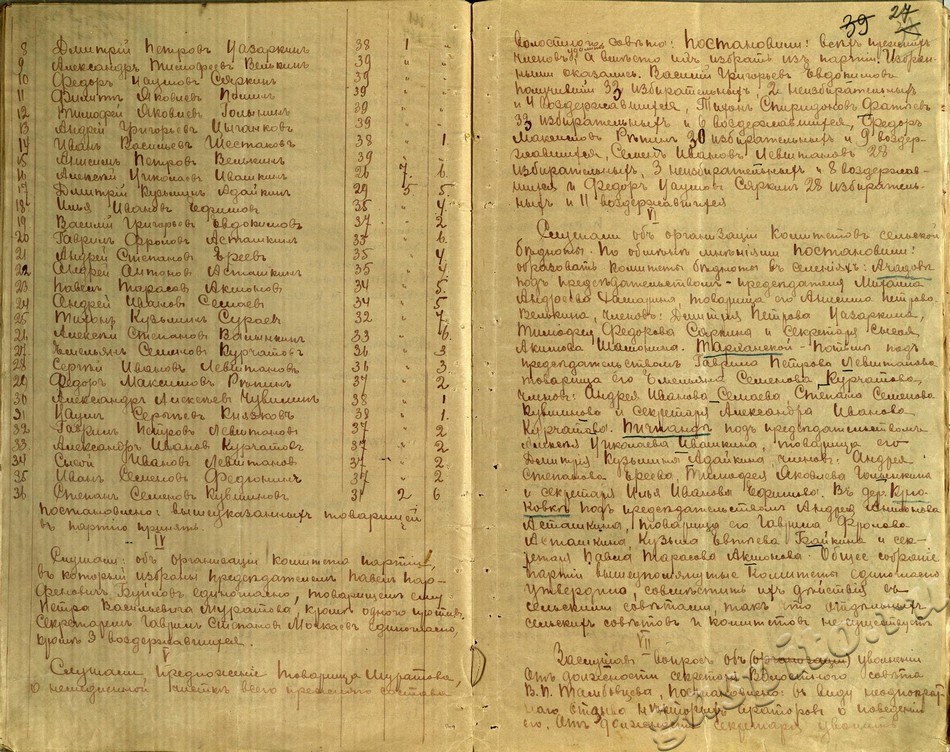 39 27
8 Дмитрій Петровъ Назаркинъ 38 1 -
9 Александръ Тимофеевъ Велькинъ 39 " -
10 Федоръ Наумовъ Сяркинъ 39 " -
11 Филиппъ Яковлевъ 39 " -
12 Тимофей Яковлевъ 39 " -
13 Андрей Григорьевъ Цыганковъ 39 " -
14 Иванъ Васильевъ Шестаковъ 38 " 1
15 Анисимъ Петровъ Велькинъ 39 " -
16 Алексей Николаевъ Ивашкинъ 26 7 6
17 Дмитрій Кузьминъ Адайкинъ 29 5 5
18 Илья Ивановъ Ефимовъ 35 " 4
19 Василій Григорьевъ Евдокимовъ 37 " 2
20 Гавриилъ Фроловъ Асташкинъ 33 " 6
21 Андрей Степановъ Ереевъ 35 " 4
22 Андрей Антоновъ Асташкинъ 35 " 4
23 Павелъ Тарасовъ Аксіоновъ 34 " 5
24 Андрей Ивановъ Семаевъ 34 " 5
25 Тихонъ Кузьминъ Сураевъ 32 " 7
26 Алексей Степановъ 33 " 6
27 Емельянъ Семеновъ Курчатовъ 36 " 3
28 Сергей Ивановъ Левштановъ 36 " 3
29 Федоръ Максимовъ Рѣпинъ 37 " 2
30 Александръ Алексеевъ Чувилинъ 38 " 1
31 Наумъ Сергеевъ Князковъ 38 " 1
32 Гаврилъ Петровъ Левштановъ 37 " 2
33 Александръ Ивановъ Курчатовъ 37 " 2
34 Сысой Ивановъ Левштановъ 37 " 2
35 Иванъ Семеновъ Федюнинъ 37 " 2
36 Степанъ Семеновъ Кувшиновъ 31 2 6
Постановлено: вышеуказанныхъ товарищей
въ партію принять.
IV
Слушали: объ организаціи комитета партіи,
въ который избраны председателемъ Павелъ Пар-
феновичъ единогласно, товарищемъ ему
Петра Васильевича Муратова, кроме одного противъ.
Секретаремъ Гаврилъ Степановъ Мокшаевъ единогласно,
кроме 3 воздержавшихся.
V
Слушали предложеніе товарища Муратова,
о немедленной чистке всего прежняго состава
волостного совета: Постановили: всехъ прежнихъ
членовъ удалить а вместо ихъ избрать изъ партіи. Избран-
ными оказались. Василій Григорьевъ Евдокимовъ
получивши 33 избирательныхъ, 2 неизбирательныхъ
и 4 воздержавшихся, Тихонъ Спиридоновъ
33 избирательныхъ и 6 воздержавшихся, Федоръ
Максимовъ Рѣпинъ 30 избирательныхъ и 9 воздер-
жавшихся, Семенъ Ивановъ Левштановъ 28
избирательныхъ, 3 неизбирательныхъ и 8 воздержав-
шихся и Федоръ Наумовъ Сяркинъ 28 избиратель-
ныхъ и 11 воздержавшихся
VI
Слушали объ организаціи комитетовъ сельской
бѣдноты. По обмене мненіями постановили:
образовать комитеты бѣдноты въ селеніяхъ: Ачадовъ
подъ председательствомъ - председателя Михаила
Андреева товарища его Анисима Петрова
Велькина, членовъ: Дмитрія Петрова Назаркина,
Тимофея Федорова Сяркина и секретаря Сысоя
Акимова. Тарханской - Потьмы подъ
председательствомъ Гаврила Петрова Левштанова
товарища его Емельяна Семенова Курчатова,
членовъ: Андрея Иванова Семаева Степана Семенова
Кувшинова и секретаря Александра Иванова
Курчатова. Пичпанда подъ председательствомъ
Алексея Николаева Ивашкина, товарища его
Дмитрія Кузьмина Адайкина членовъ: Андрея
Степанова Ереева Тимофея Яковлева
и секретаря Ильи Иванова Ефимова. Въ дер. Крю-
ковкѣ подъ председательствомъ Андрея Антонова
Асташкина, товарища его Гаврила Фролова
Асташкина, Кузьмы Евтеева и сек-
ретаря Павла Тарасова Аксіонова. Общее собраніе
партіи вышеупомянутые комитеты единогласно
утвердило, совместить ихъ действія съ
сельскими советами, такъ что отдельныхъ
сельскихъ советовъ и комитетовъ не существуетъ
VII
Заслушавъ вопросъ объ (организаціи) увольненіи
отъ должности секретаря Волостного совета
В.П. Тамбовцева, постановлено: въ виду неоднократ-
наго ораторовъ о поведеніи
его. Отъ должности секретаря уволить